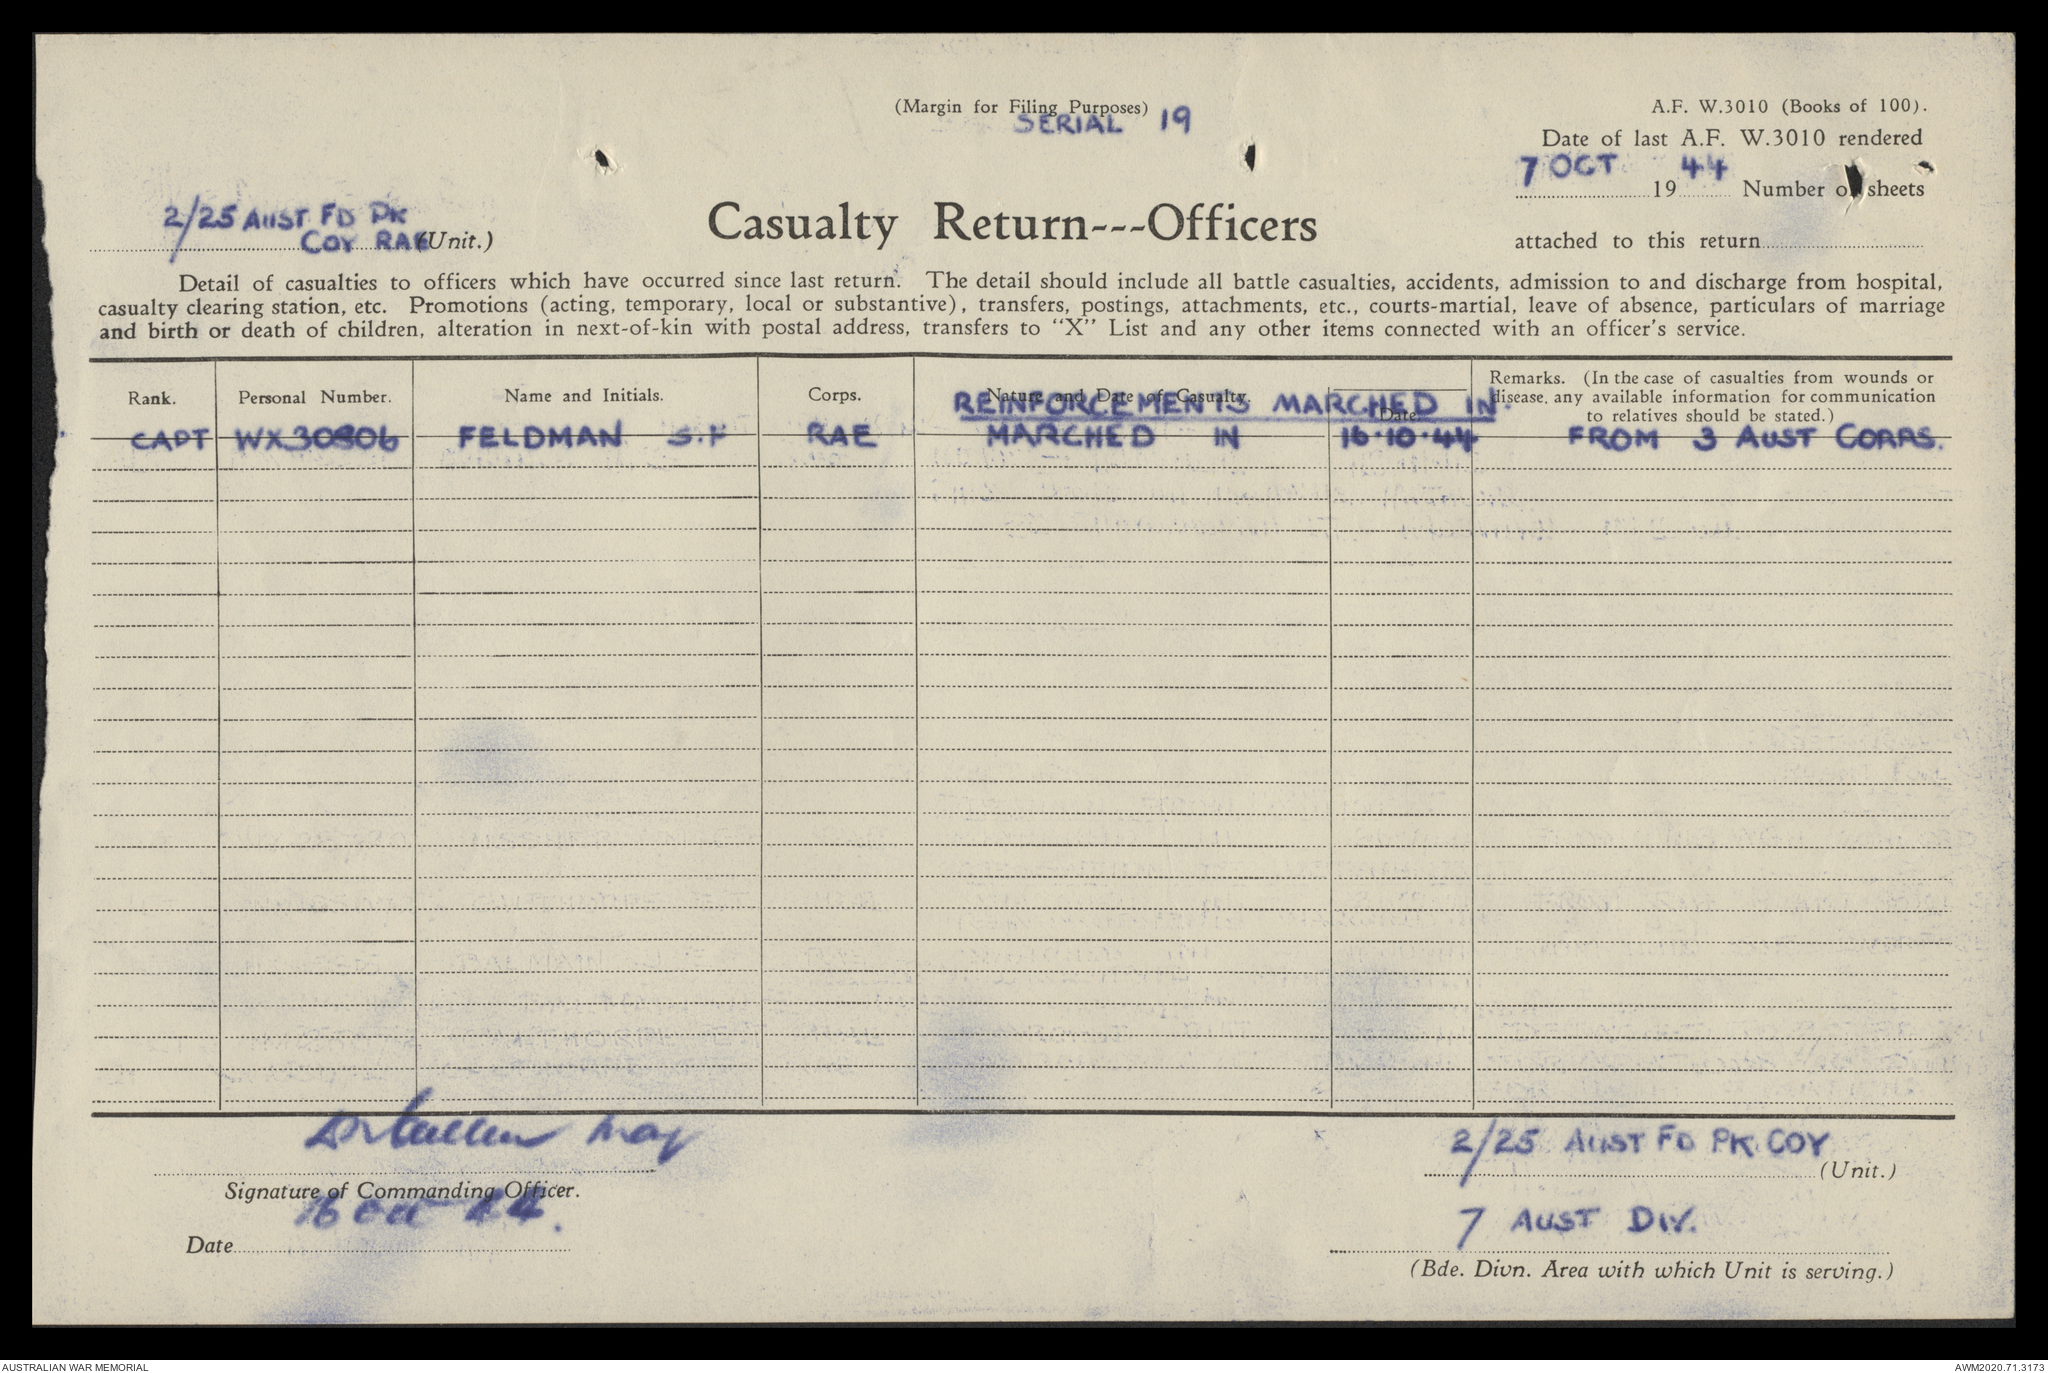 (Margin for Filing Purposes)
SERIAL 19
A.F. W.3010 (Books of 100).
Date of last A.F. W.3010 rendered
7 OCT 1944 Number of sheets
attached to this return
2/25 AUST FD PK
COY RAE (Unit.)
Casualty Return---Officers
Detail of casualties to officers which have occurred since last return. The detail should include all battle casualties, accidents, admission to and discharge from hospital,
casualty clearing station, etc. Promotions (acting, temporary, local or substantive), transfers, postings, attachments, etc., courts-martial, leave of absence, particulars of marriage
and birth or death of children, alteration in next-of-kin with postal address, transfers to "X" List and any other items connected with an officer's service.
Rank. Personal Number. Name and Initials. Corps. Nature and Date of Casualty. Date
Remarks. (In the case of casualties from wounds or
disease, any available information for communication
to relatives should be stated.)
REINFORCEMENTS MARCHED IN.
CAPT WX30806 FELDMAN S.F RAE MARCHED IN 16.10.44 FROM 3 AUST CORPS.
Maj
Signature of Commanding Officer.
16 Oct 44.
Date
2/25 AUST FD PK COY
(Unit.)
7 AUST DIV.
(Bde. Divn. Area with which Unit is serving.)
AUSTRALIAN WAR MEMORIAL
AWM2020.71.3173